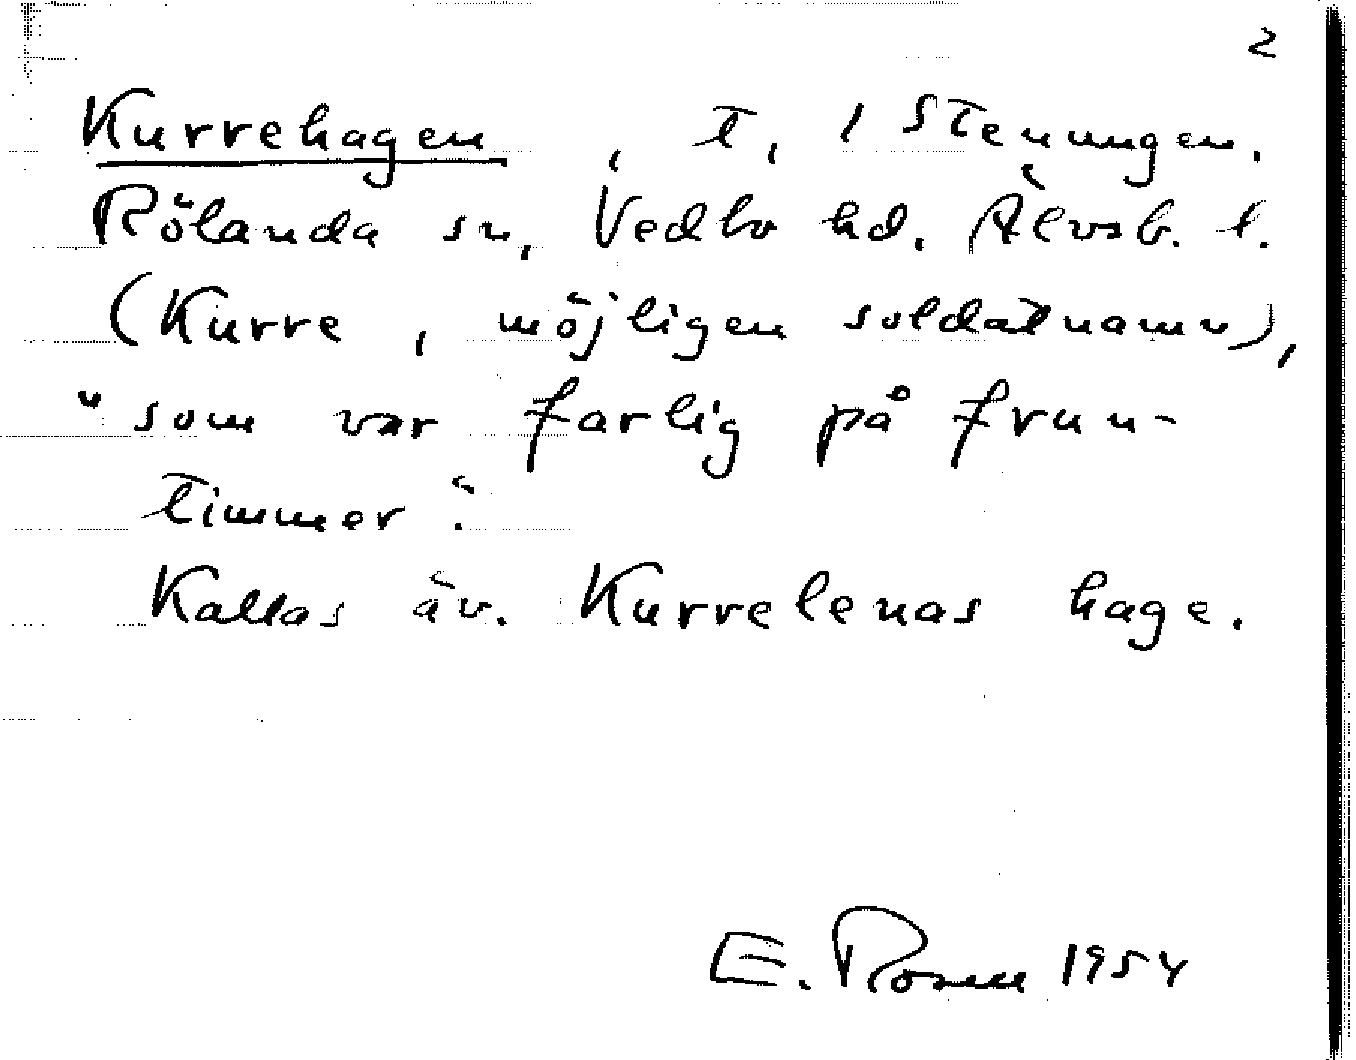 2
Kurrehagen, t, 1 Stenungen.
Rölanda sn, Vedbo hd. Älvsb. l.
(Kurre, möjligen soldatnamn),
"som var farlig på frun-
timmer".
Kallas äv. Kurrelenas hage.
E. Rosen 1954